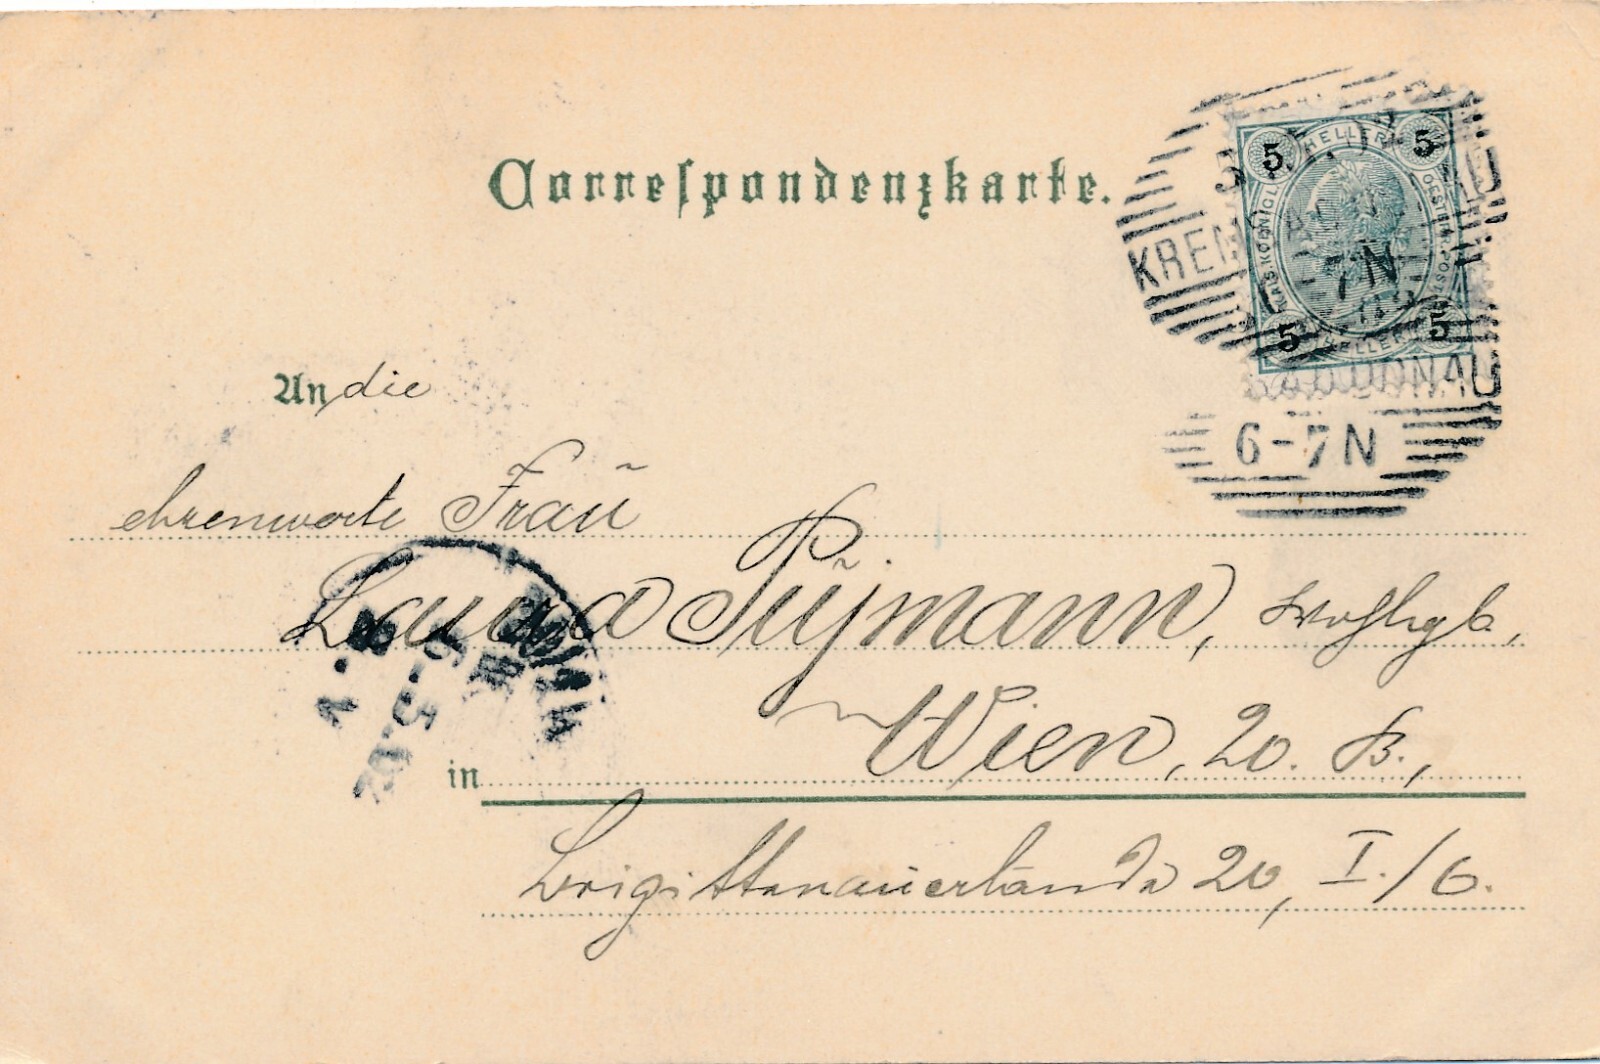 Correspondenzkarte.
5 HELLER 5
KAIS. KOENIGL. OESTERR. POST
5 HELLER 5
KREMS
6-7N
DONAU
6-7N
An die
ehrenwerte Frau
Laura Pitzmann, Wohlgb.,
in Wien, 20. B.,
Brigittenauerlände 20, I./6.